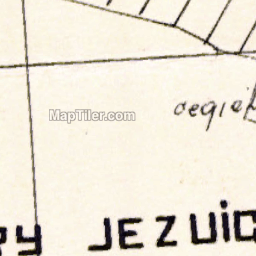 MapTiler.com
cegiel
RY JEZUIC